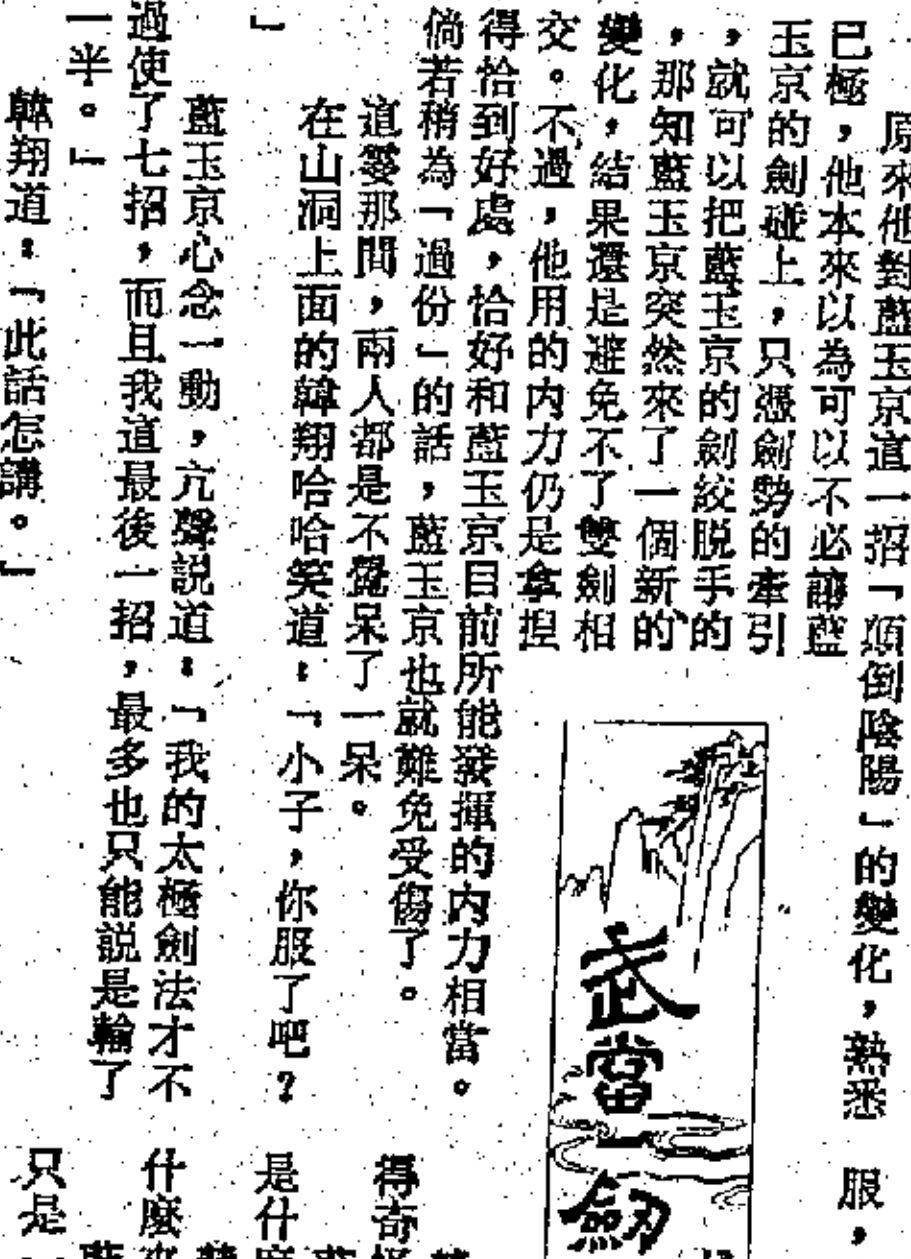 原來他對藍玉京這一招「顛倒陰陽」的變化，熟悉
已極，他本來以為可以不必讓藍
玉京的劍碰上，只憑劍勢的牽引
，就可以把藍玉京的劍絞脱手的
，那知藍玉京突然來了一個新的
變化，結果還是避免不了雙劍相
交。不過，他用的内力仍是拿捏
得恰到好處，恰好和藍玉京目前所能發揮的内力相當。
倘若稍為「過份」的話，藍玉京也就難免受傷了。
這霎那間，兩人都是不覺呆了一呆。
在山洞上面的韓翔哈哈笑道：「小子，你服了吧？
」
藍玉京心念一動，亢聲説道：「我的太極劍法才不
過使了七招，而且我這最後一招，最多也只能説是輸了
一半。」
韓翔道：「此話怎講。」
武當一劍
服，
得奇怪
是什麼
什麼來
只是